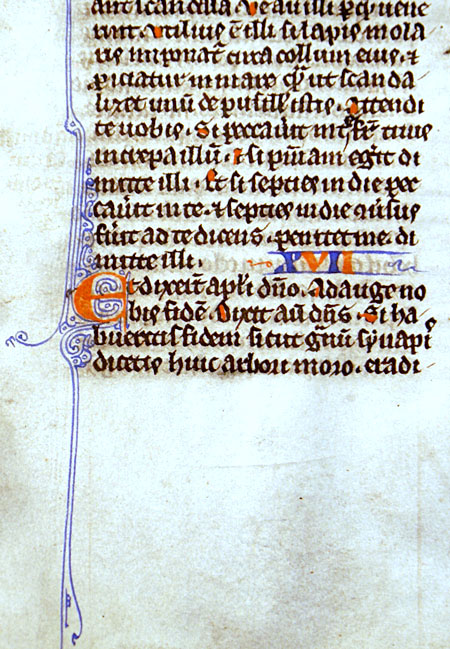 ant scandella. Ve au illi ꝑ quē uene
runt. Utilius ē illi si lapis mola
ris inponat᷑ circa collum eius. ⁊
ꝓiciatur in mare qm̄ ut scanda
lizet unū de pusill' istis. Attendi
te uobis. Si peccauit in te fr̄ tuus
increpa illū. ⁊ si pn̄iam egit di
mitte illi. Et si septies in die pec
cauit in te. ⁊ septies in die ūsus
fuit ad te dicens. penitet me. di
mitte illi.
Et dixer̄t apl̓i dn̄o. Adauge no
bis fidē. Dixit aū dn̄s. Si ha
bueretis fidem sicut gn̄um synapi
dicetis huic arbori moro. eradi